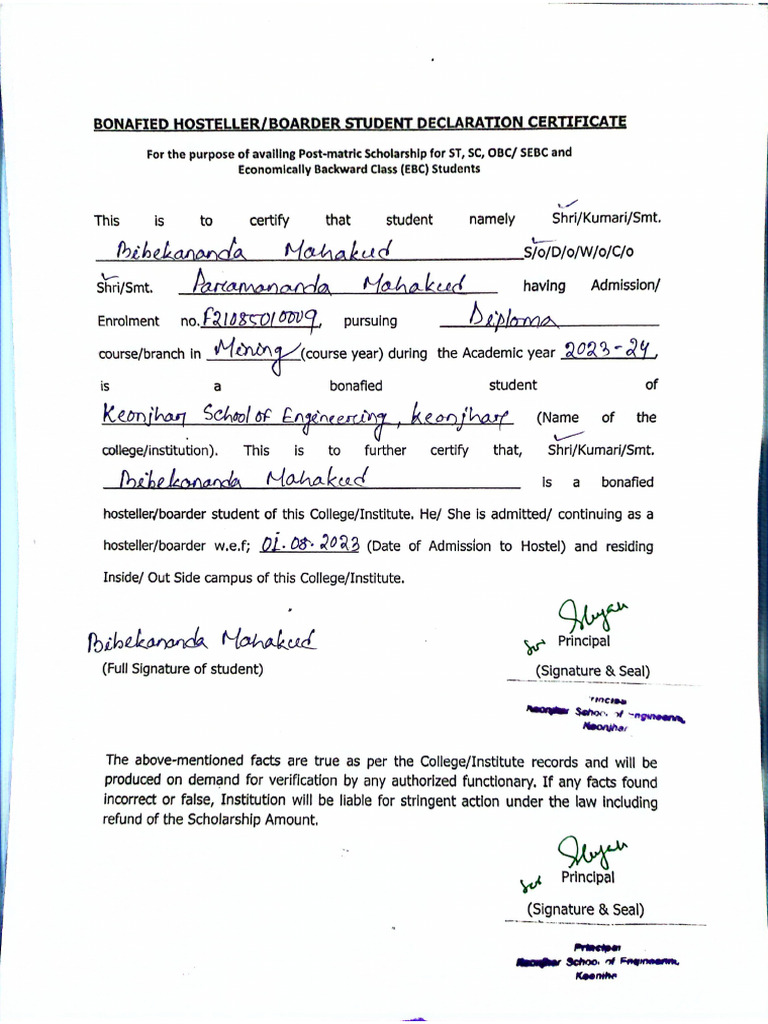 BONAFIED HOSTELLER/BOARDER STUDENT DECLARATION CERTIFICATE
For the purpose of availing Post-matric Scholarship for ST, SC, OBC/ SEBC and
Economically Backward Class (EBC) Students
This is to certify that student namely Shri/Kumari/Smt.
Bibekananda Mahakud S/o/D/o/W/o/C/o
Shri/Smt. Paramananda Mahakud having Admission/
Enrolment no. F21085010009, pursuing Diploma
course/branch in Mining (course year) during the Academic year 2023-24,
is a bonafied student of
Keonjhar School of Engineering, Keonjhar (Name of the
college/institution). This is to further certify that, Shri/Kumari/Smt.
Bibekananda Mahakud is a bonafied
hosteller/boarder student of this College/Institute. He/ She is admitted/ continuing as a
hosteller/boarder w.e.f; 01.08.2023 (Date of Admission to Hostel) and residing
Inside/ Out Side campus of this College/Institute.
Bibekananda Mahakud
(Full Signature of student)
Principal
(Signature & Seal)
Keonjhar School of Engineering
Keonjhar
The above-mentioned facts are true as per the College/Institute records and will be
produced on demand for verification by any authorized functionary. If any facts found
incorrect or false, Institution will be liable for stringent action under the law including
refund of the Scholarship Amount.
Principal
(Signature & Seal)
Principal
Keonjhar School of Engineering,